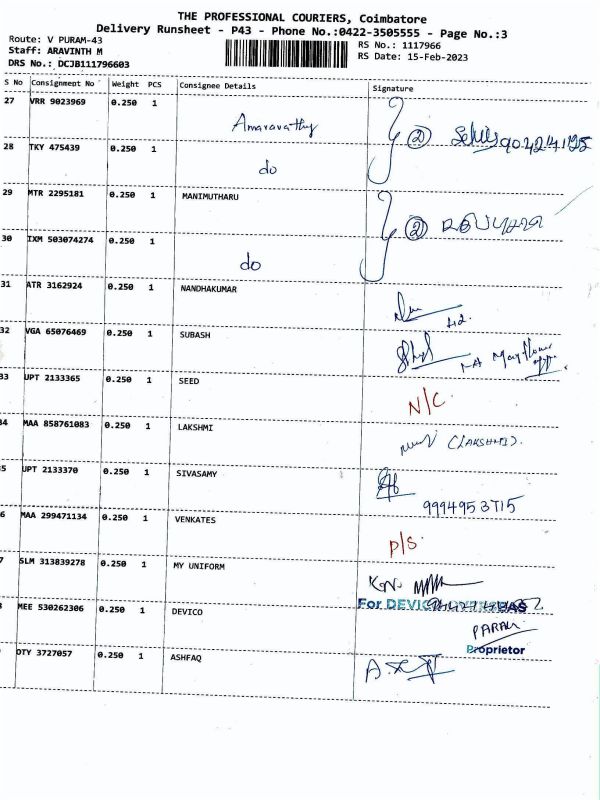 THE PROFESSIONAL COURIERS, Coimbatore
Delivery Runsheet - P43 - Phone No.:0422-3505555 - Page No.:3
Route: V PURAM-43
Staff: ARAVINTH M
DRS No.: DCJB111796603
RS No.: 1117966
RS Date: 15-Feb-2023
S No Consignment No Weight PCS Consignee Details Signature
27 VRR 9023969 0.250 1
Amaravathy
②
28 TKY 475439 0.250 1
do
29 MTR 2295181 0.250 1 MANIMUTHARU
②
30 IXM 503074274 0.250 1
do
31 ATR 3162924 0.250 1 NANDHAKUMAR
32 VGA 65076469 0.250 1 SUBASH
33 UPT 2133365 0.250 1 SEED
N/C
34 MAA 858761083 0.250 1 LAKSHMI
(LAKSHMI).
5 UPT 2133370 0.250 1 SIVASAMY
9994953715
6 MAA 299471134 0.250 1 VENKATES
P/S.
7 SLM 313839278 0.250 1 MY UNIFORM
For DEVIC
MEE 530262306 0.250 1 DEVICO
Proprietor
OTY 3727057 0.250 1 ASHFAQ